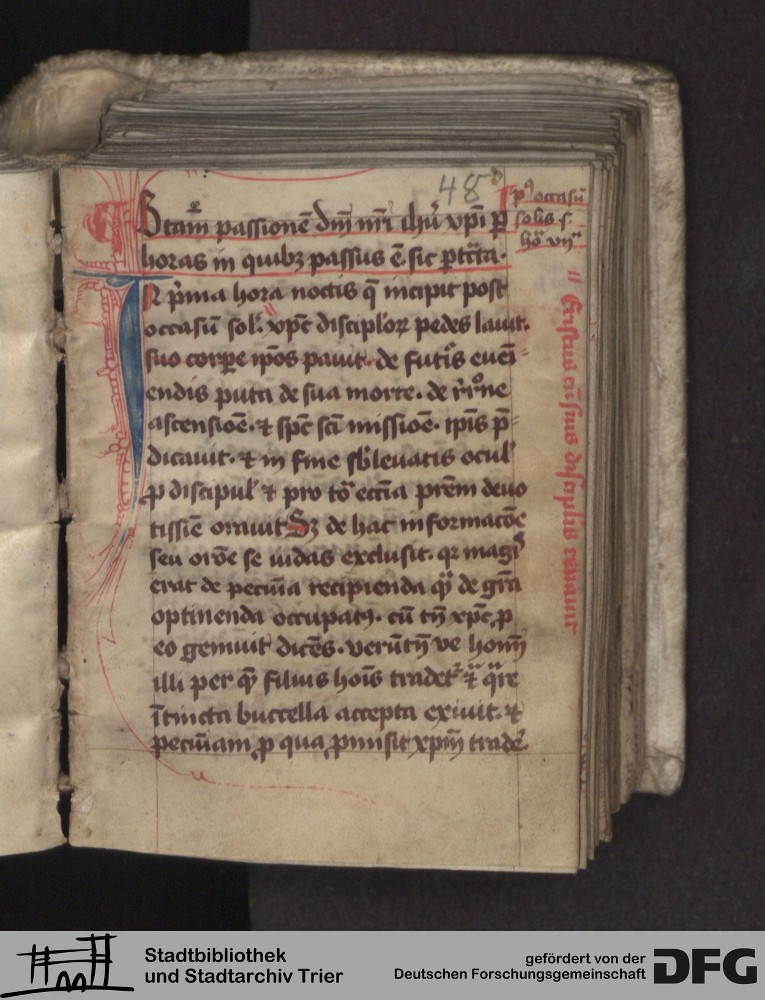 48
Stam̄ passionē dn̄i nr̄i ihū xpi ꝑ
horas in quibꝫ passus ē sic ꝑtc̄ta.
IN pͥma hora noctis q̄ incipit post
occasū sol. xpc̄ disciploꝝ pedes lauit.
suo corpe ip̄os pauit. de futīs euēi⸗
endis puta de sua morte. de rr̄one
ascensiōe. ⁊ spc̄ sc̄i missiōe. ip̄is p̄⸗
dicauit. ⁊ in fine sb̓leuatis ocul̓
ꝓ discipul̓ ⁊ pro tō ecc̄ia prēm deuo
tissie orauit Sꝫ de hac informacōe
seu ord̄e se iudas exclusit. qr magꝭ
erat de pecūia recipienda qͣ̄ de grā
optinenda occupatꝰ. cū tn̄ xpc̄ ꝓ
eo gemuit dicēs. verūtn̄ ve homī
illi per qͫ filius hoīs tradetᷣ ⁊ qͣre
ītincta buccella accepta exiuit. ⁊
pecūiam ꝓ qua ꝓmisit xpm̄ tradē
pꝰ occasū
solis s.
ho vijᵃ
Cristus cū suis discipulis cenauit
Stadtbibliothek
und Stadtarchiv Trier
gefördert von der
Deutschen Forschungsgemeinschaft
DFG